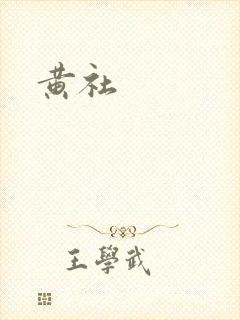 黄社
王學武